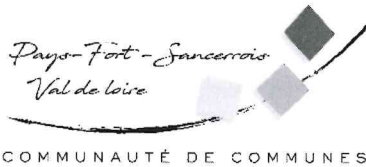 Pays-Fort-Sancerrois
Val de loire
COMMUNAUTÉ DE COMMUNES